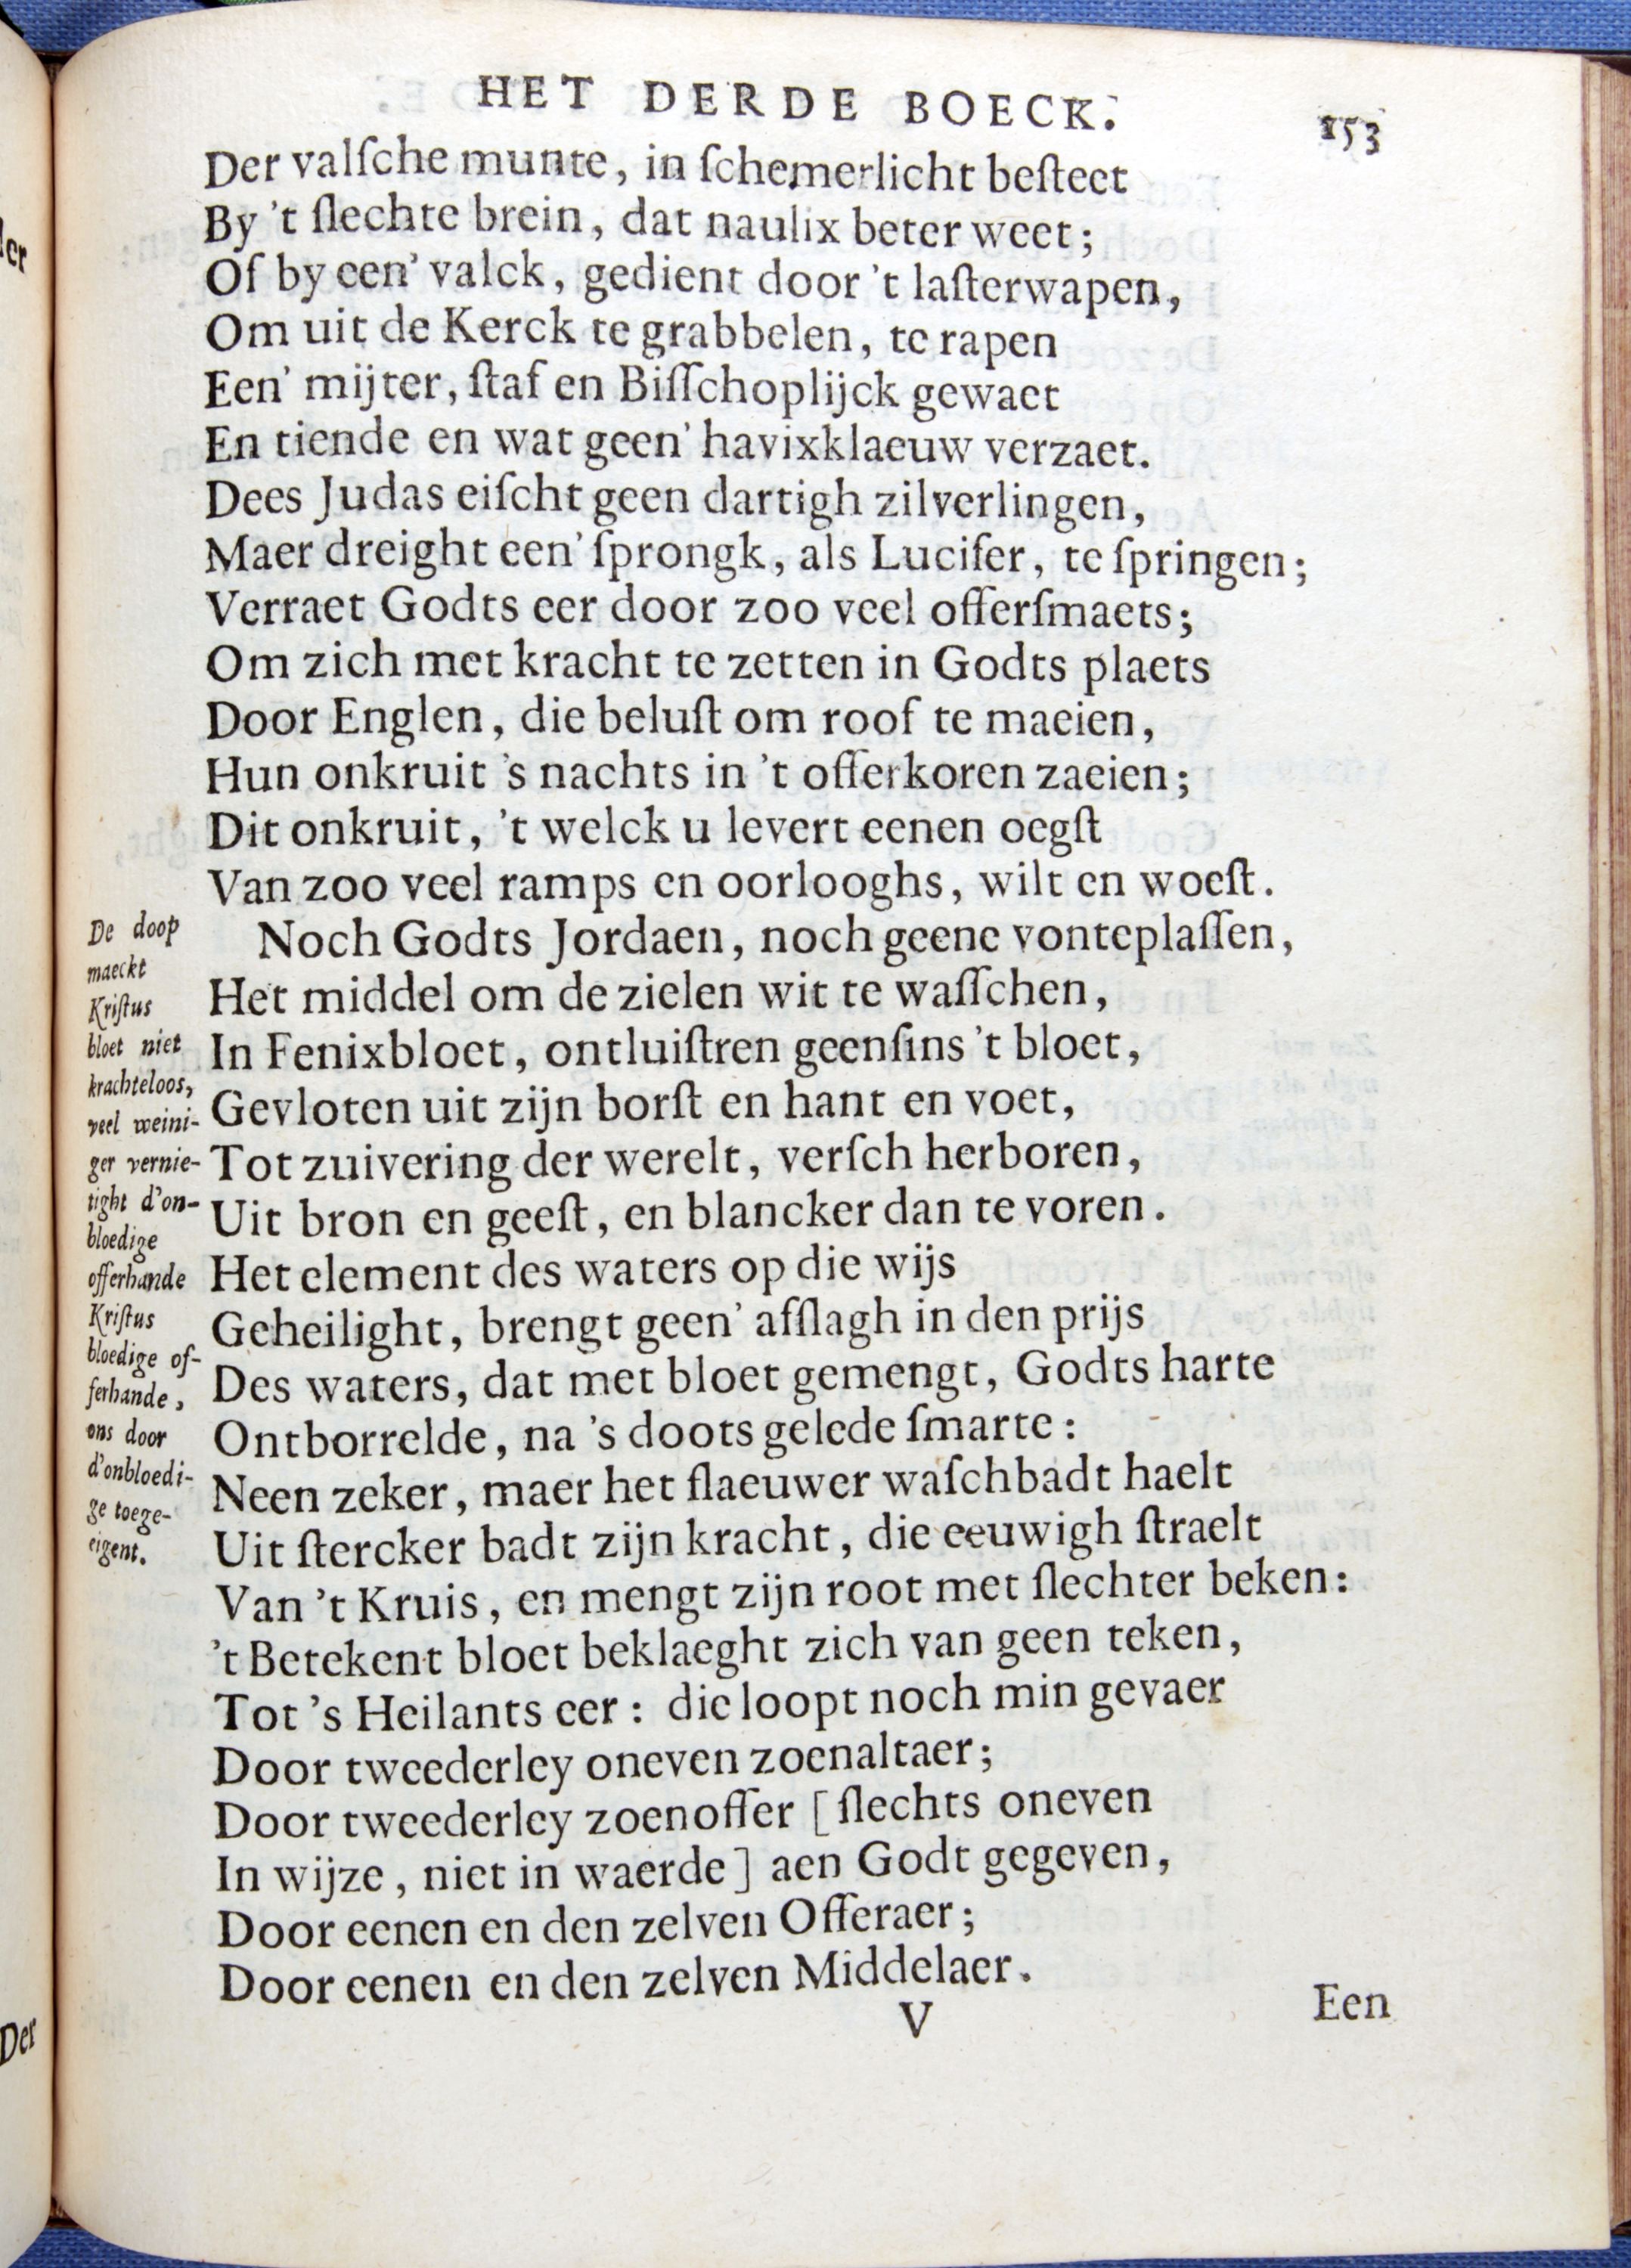 HET DERDE BOECK. 153
Der valſche munte, in ſchemerlicht beſteet
By 't ſlechte brein, dat naulix beter weet;
Of by een' valck, gedient door 't laſterwapen,
Om uit de Kerck te grabbelen, te rapen
Een' mijter, ſtaf en Biſſchoplijck gewaet
En tiende en wat geen' havixklaeuw verzaet.
Dees Judas eiſcht geen dartigh zilverlingen,
Maer dreight een' ſprongk, als Lucifer, te ſpringen;
Verraet Godts eer door zoo veel offerſmaets;
Om zich met kracht te zetten in Godts plaets
Door Englen, die beluſt om roof te maeien,
Hun onkruit 's nachts in 't offerkoren zaeien;
Dit onkruit, 't welck u levert eenen oegſt
Van zoo veel ramps en oorlooghs, wilt en woeſt.
Noch Godts Jordaen, noch geene vonteplaſſen,
Het middel om de zielen wit te waſſchen,
In Fenixbloet, ontluiſtren geenſins 't bloet,
Gevloten uit zijn borſt en hant en voet,
Tot zuivering der werelt, verſch herboren,
Uit bron en geeſt, en blancker dan te voren.
Het element des waters op die wijs
Geheilight, brengt geen' afſlagh in den prijs
Des waters, dat met bloet gemengt, Godts harte
Ontborrelde, na 's doots gelede ſmarte:
Neen zeker, maer het flaeuwer waſchbadt haelt
Uit ſtercker badt zijn kracht, die eeuwigh ſtraelt
Van 't Kruis, en mengt zijn root met ſlechter beken:
't Betekent bloet beklaeght zich van geen teken,
Tot 's Heilants eer: die loopt noch min gevaer
Door tweederley oneven zoenaltaer;
Door tweederley zoenoffer [ ſlechts oneven
In wijze, niet in waerde ] aen Godt gegeven,
Door eenen en den zelven Offeraer;
Door eenen en den zelven Middelaer.
De doop
maeckt
Kriſtus
bloet niet
krachteloos,
veel weini-
ger vernie-
tight d'on-
bloedige
offerhande
Kriſtus
bloedige of-
ferhande,
ons door
d'onbloedi-
ge toege-
eigent.
V Een
Der